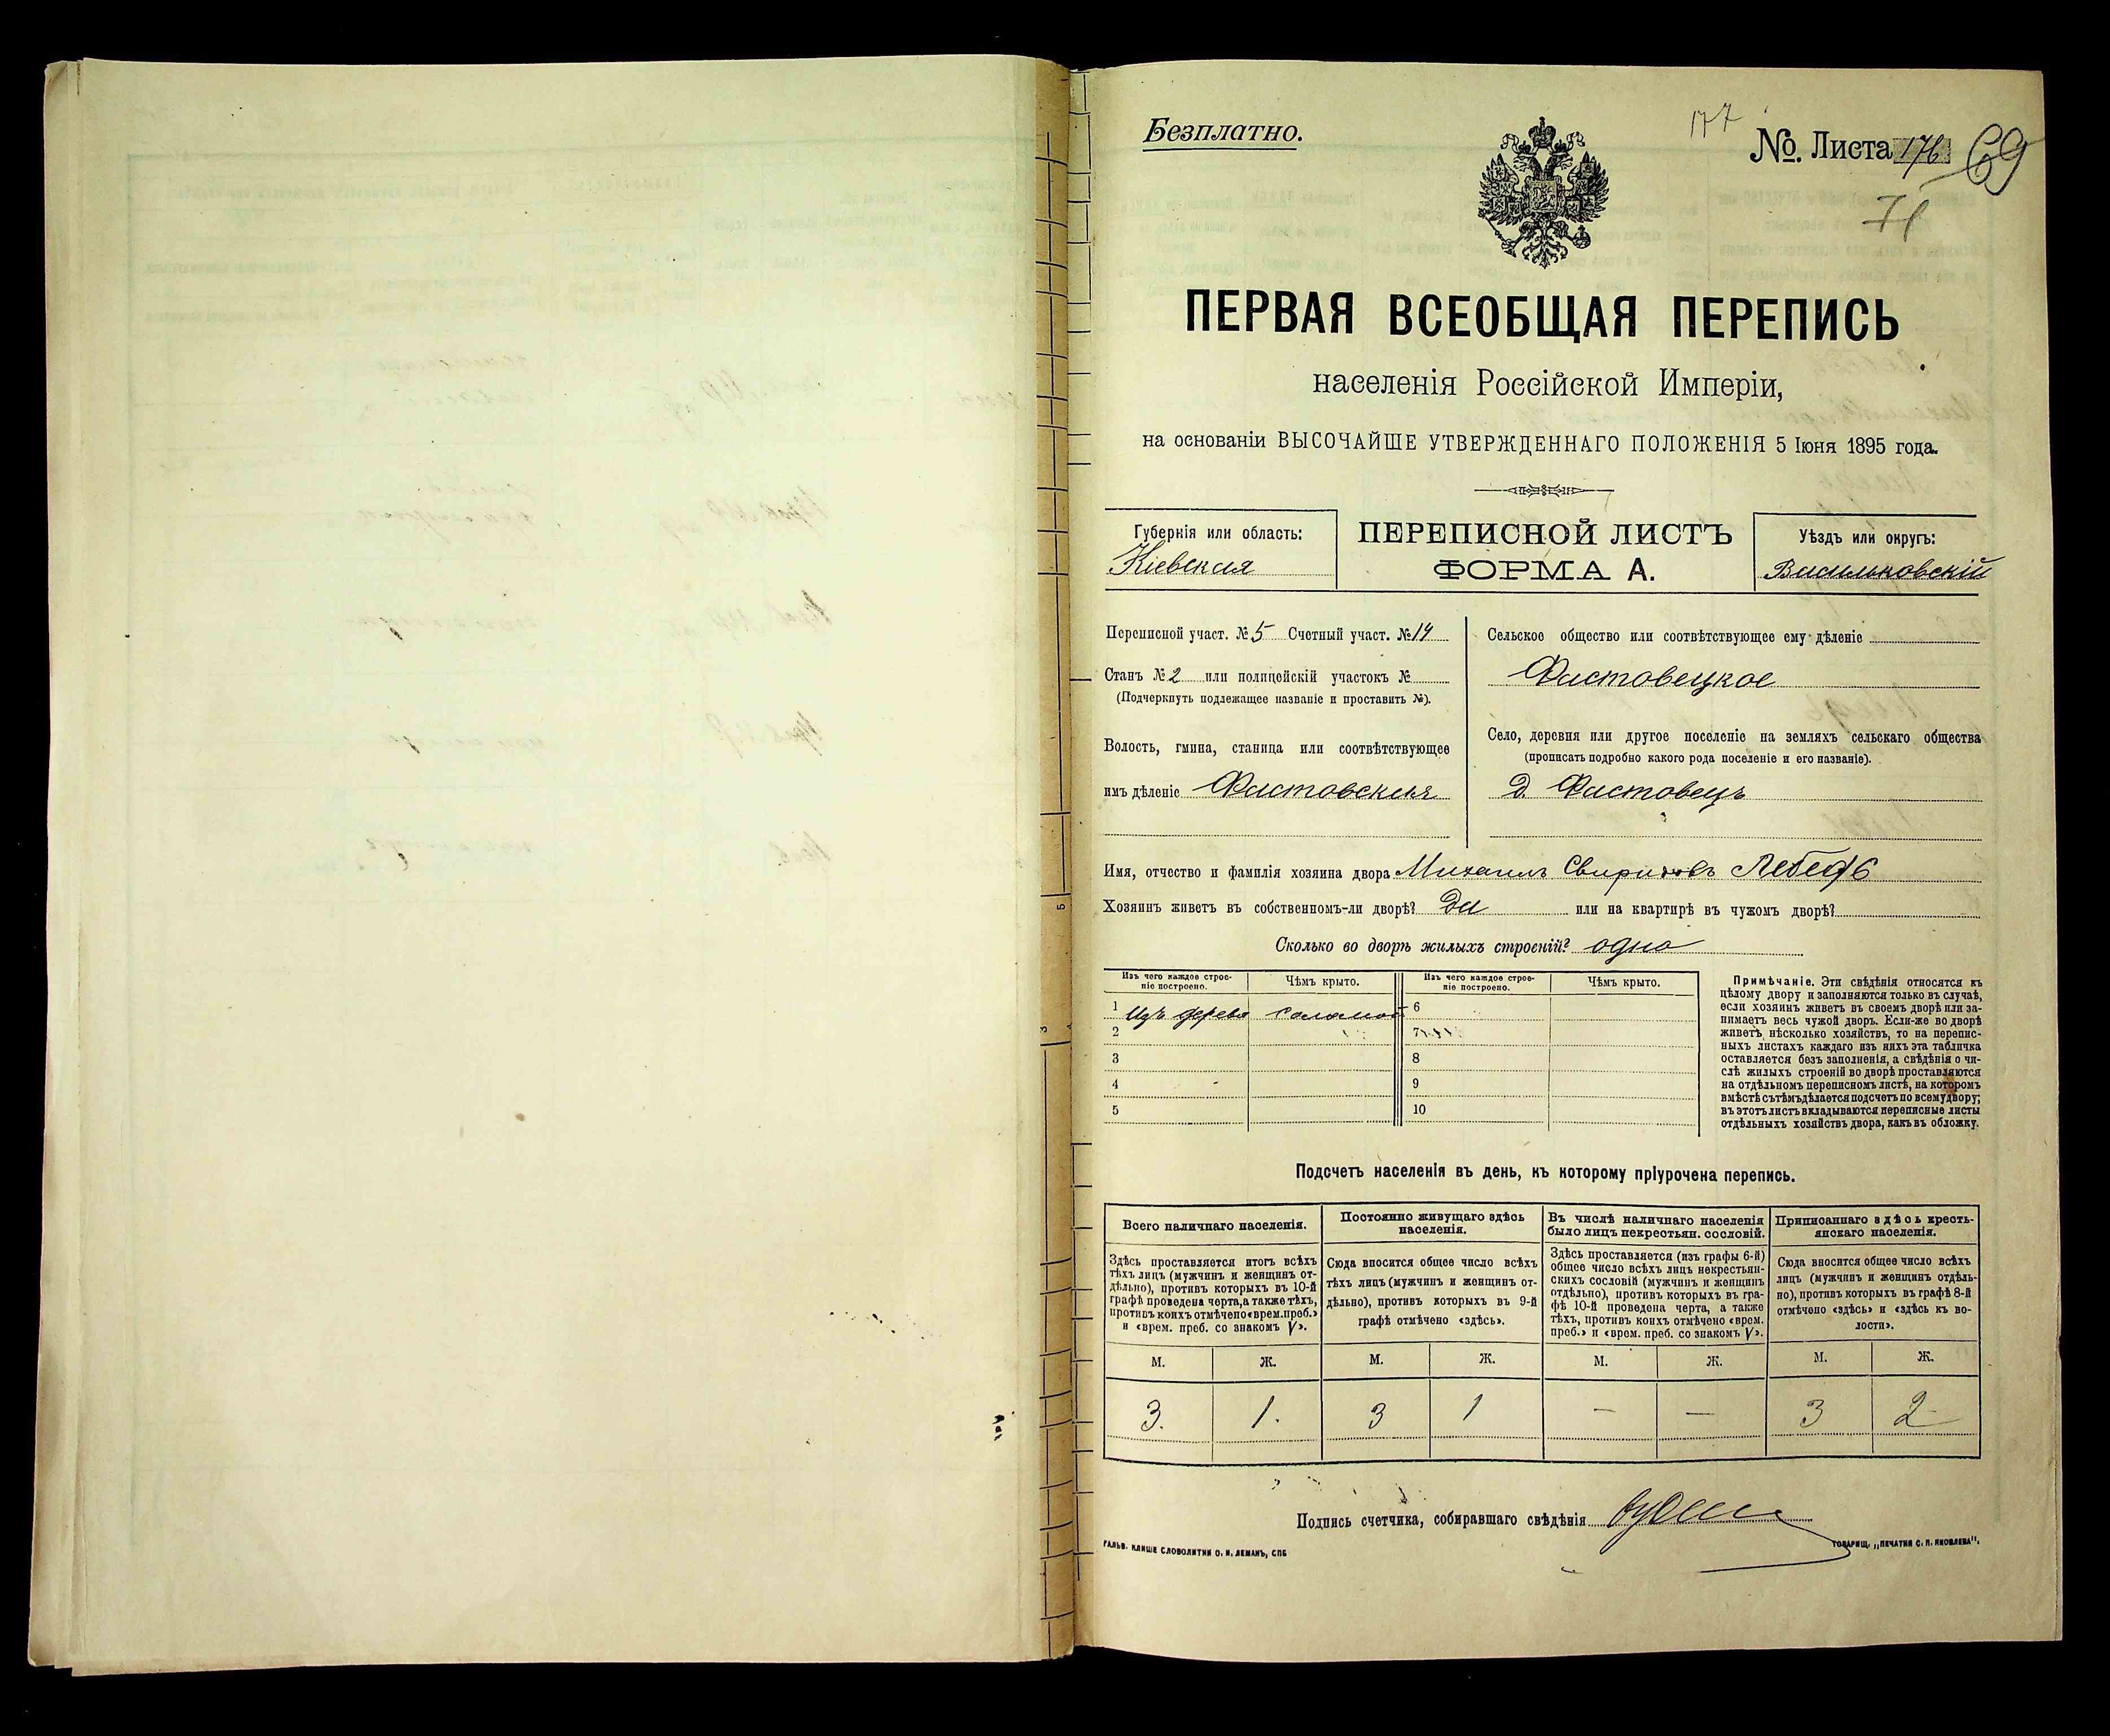 Безплатно.
177
№. Листа 176 69
71
ПЕРВАЯ ВСЕОБЩАЯ ПЕРЕПИСЬ
населенія Россійской Имперіи,
на основаніи ВЫСОЧАЙШЕ УТВЕРЖДЕННАГО ПОЛОЖЕНІЯ 5 Іюня 1895 года.
Губернія или область:
Кіевская
ПЕРЕПИСНОЙ ЛИСТЪ
ФОРМА А.
Уѣздъ или округъ:
Васильковскій
Переписной участ. № 5 Счетный участ. № 14
Станъ № 2 или полицейскій участокъ №
(Подчеркнуть подлежащее названіе и проставить №).
Волость, гмина, станица или соотвѣтствующее
имъ дѣленіе Фастовская
Сельское общество или соотвѣтствующее ему дѣленіе
Фастовецкое
Село, деревня или другое поселеніе на земляхъ сельскаго общества
(прописать подробно какого рода поселеніе и его названіе).
д. Фастовецъ
Имя, отчество и фамилія хозяина двора Михаилъ Свиридовъ Лебедь
Хозяинъ живетъ въ собственномъ-ли дворѣ? Да или на квартирѣ въ чужомъ дворѣ?
Сколько во дворѣ жилыхъ строеній? одно
Изъ чего каждое строе-
ніе построено.
Чѣмъ крыто.
Изъ чего каждое строе-
ніе построено.
Чѣмъ крыто.
1 Изъ дерева соломой 6
2 7
3 8
4 9
5 10
Примѣчаніе. Эти свѣдѣнія относятся къ
цѣлому двору и заполняются только въ случаѣ,
если хозяинъ живетъ въ своемъ дворѣ или за-
нимаетъ весь чужой дворъ. Если-же во дворѣ
живетъ нѣсколько хозяйствъ, то на перепис-
ныхъ листахъ каждаго изъ нихъ эта табличка
оставляется безъ заполненія, а свѣдѣнія о чи-
слѣ жилыхъ строеній во дворѣ проставляются
на отдѣльномъ переписномъ листѣ, на которомъ
вмѣстѣ съ тѣмъ дѣлается подсчетъ по всему двору;
въ этотъ листъ вкладываются переписные листы
отдѣльныхъ хозяйствъ двора, какъ въ обложку.
Подсчетъ населенія въ день, къ которому пріурочена перепись.
Всего наличнаго населенія.
Здѣсь проставляется итогъ всѣхъ
тѣхъ лицъ (мужчинъ и женщинъ от-
дѣльно), противъ которыхъ въ 10-й
графѣ проведена черта, а также тѣхъ,
противъ коихъ отмѣчено «врем. преб.»
и «врем. преб. со знакомъ V».
Постоянно живущаго здѣсь
населенія.
Сюда вносится общее число всѣхъ
тѣхъ лицъ (мужчинъ и женщинъ от-
дѣльно), противъ которыхъ въ 9-й
графѣ отмѣчено «здѣсь».
Въ числѣ наличнаго населенія
было лицъ некрестьян. сословій.
Здѣсь проставляется (изъ графы 6-й)
общее число всѣхъ лицъ некрестьян-
скихъ сословій (мужчинъ и женщинъ
отдѣльно), противъ которыхъ въ гра-
фѣ 10-й проведена черта, а также
тѣхъ, противъ коихъ отмѣчено «врем.
преб.» и «врем. преб. со знакомъ V».
Приписаннаго здѣсь кресть-
янскаго населенія.
Сюда вносится общее число всѣхъ
лицъ (мужчинъ и женщинъ отдѣль-
но), противъ которыхъ въ графѣ 8-й
отмѣчено «здѣсь» и «здѣсь къ во-
лости».
М. Ж. М. Ж. М. Ж. М. Ж.
3. 1. 3 1 — — 3 2
Подпись счетчика, собиравшаго свѣдѣнія
ГАЛЬВ. КЛИШЕ СЛОВОЛИТНИ О. И. ЛЕМАНЪ, СПБ
ТОВАРИЩ. „ПЕЧАТНЯ С. П. ЯКОВЛЕВА".